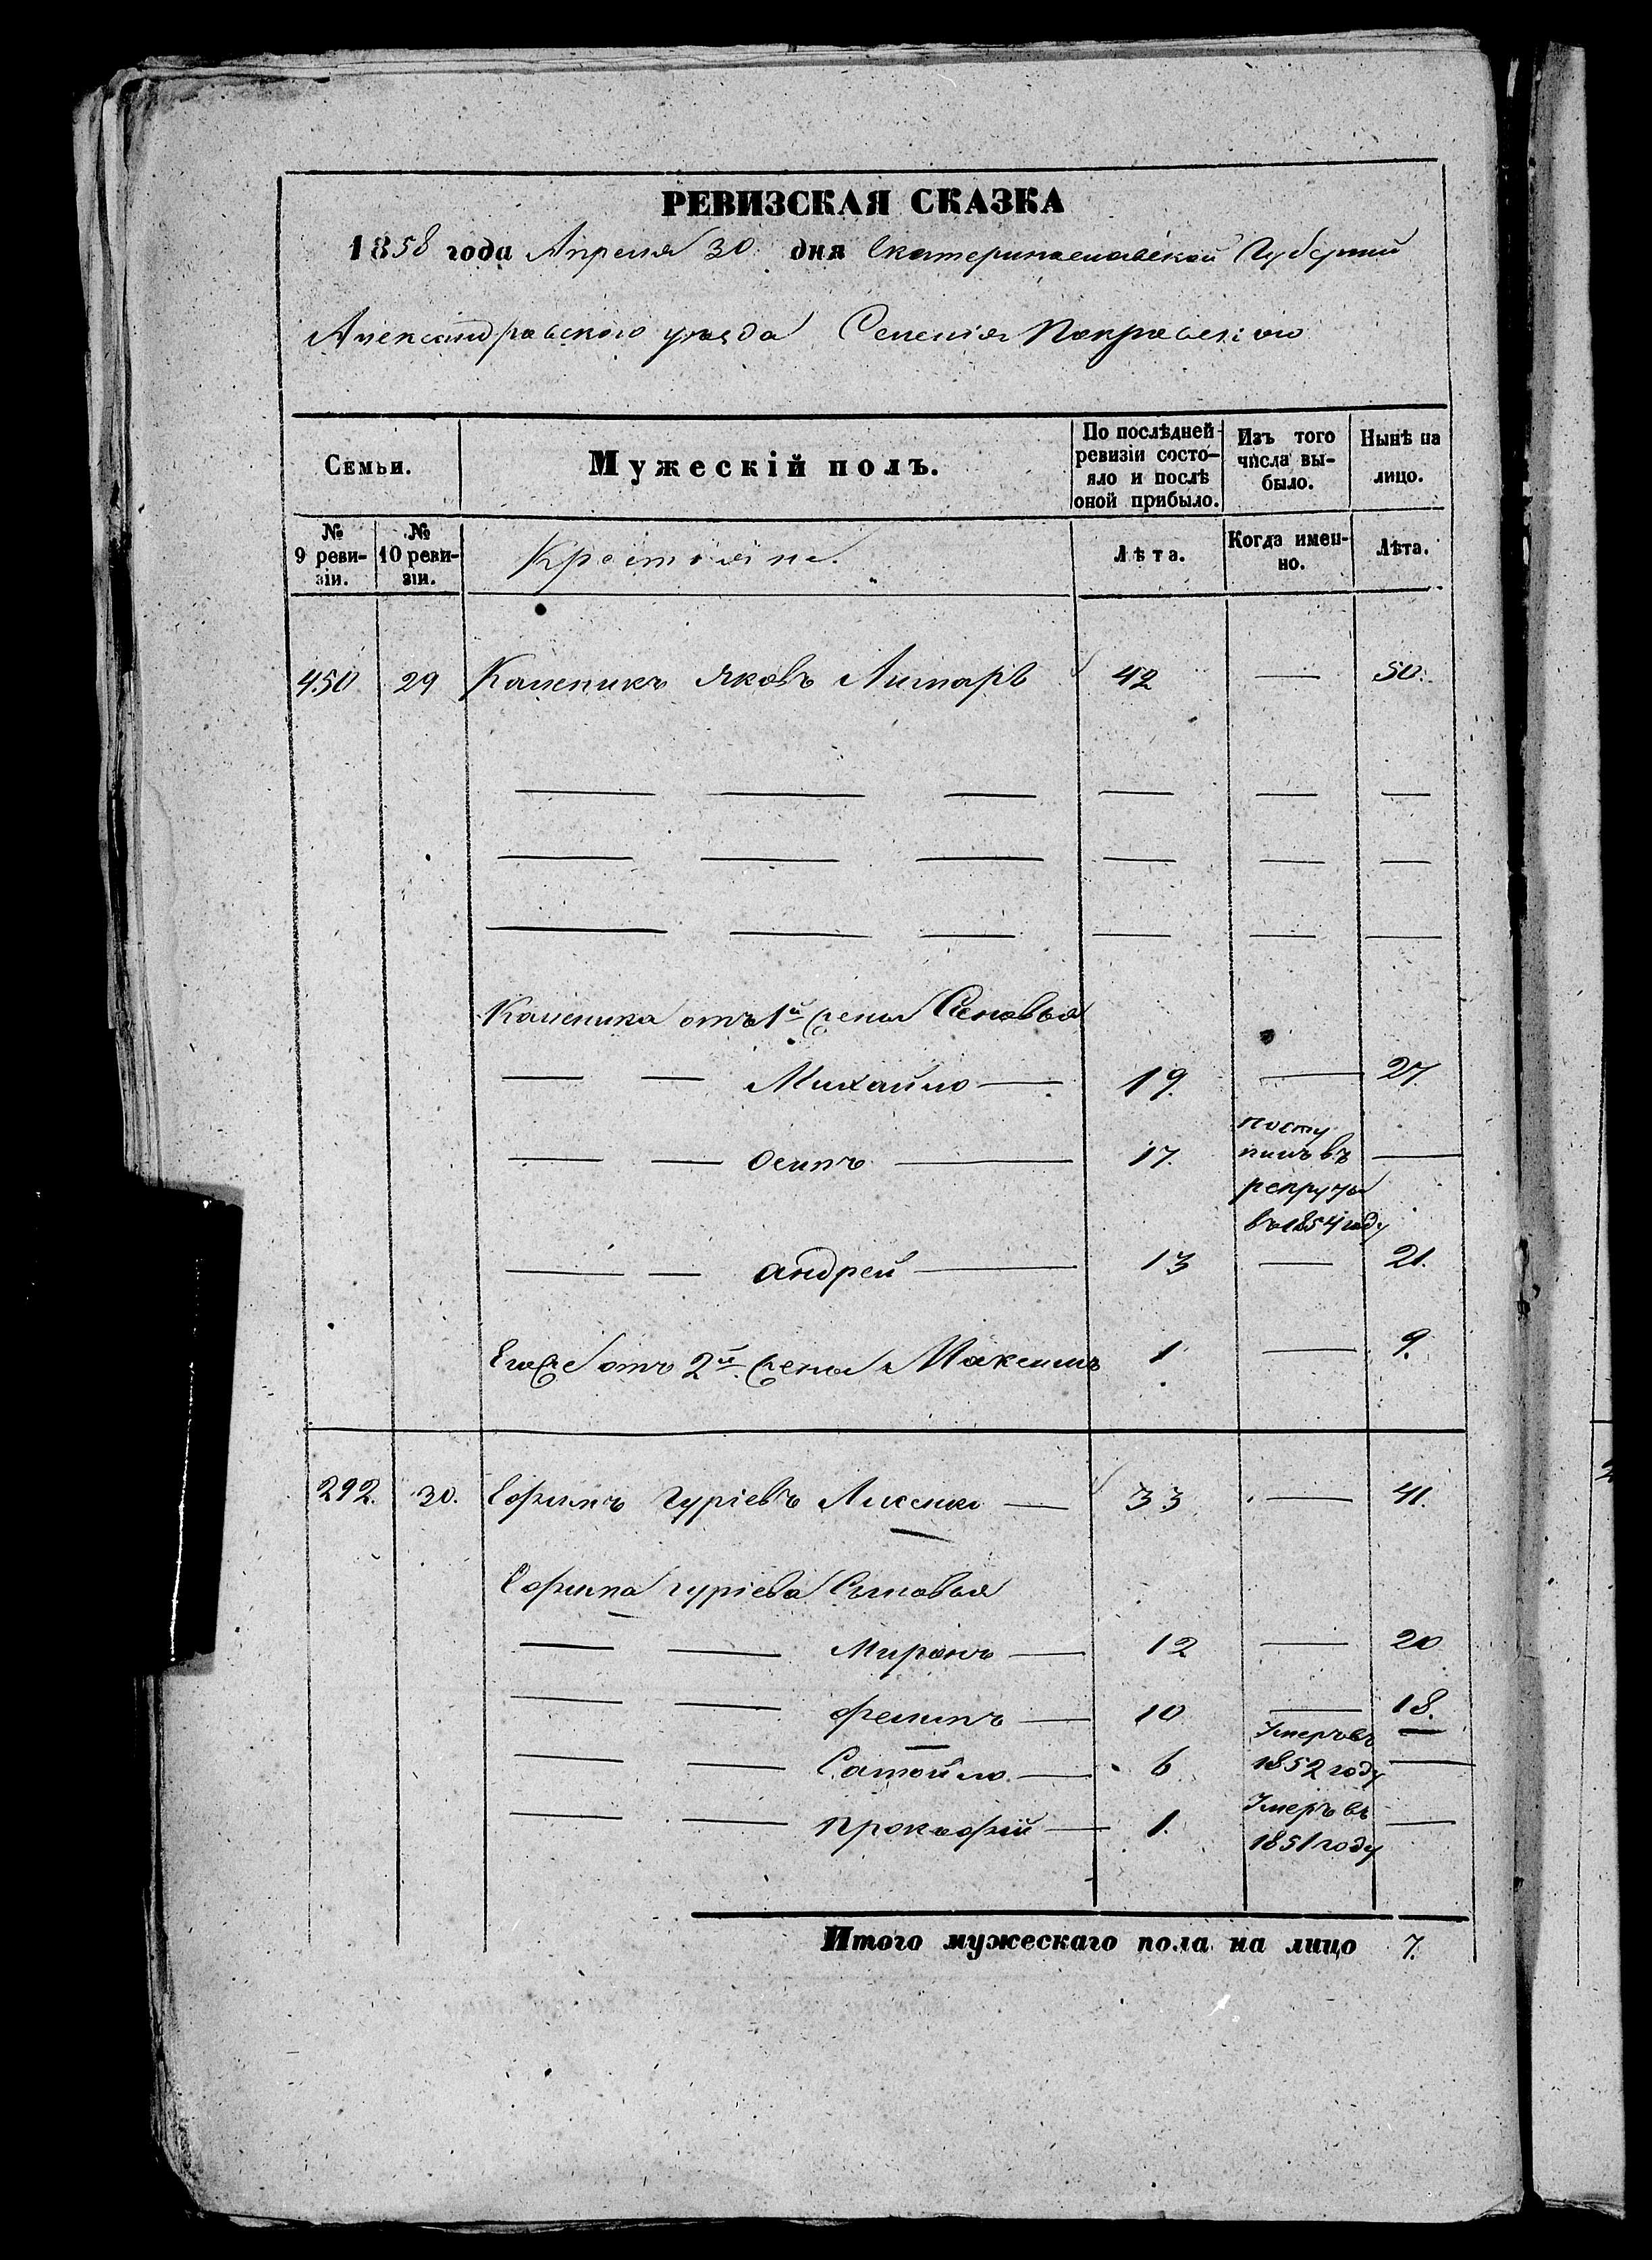 РЕВИЗСКАЯ СКАЗКА
1858 года Апреля 30 дня Екатеринославской Губернии
Александровского уезда Селения Покровского
Семьи. Мужескій полъ. По послѣдней ревизіи состояло и послѣ оной прибыло. Изъ того числа выбыло. Нынѣ на лицо.
№ 9 ревизіи. № 10 ревизіи. Крестьяне. Лѣта. Когда именно. Лѣта.
450 29 Каленикъ Яковъ Лимарь 42 — 50.
— — — — — —
— — — — — —
— — — — — —
Каленика отъ 1й жены Сыновья
— — Михайло — 19. — 27
— — Осипъ — 17. поступилъ въ рекруты въ 1854 году —
— — андрей — 13 — 21.
Егоже отъ 2й жены Максимъ 1 — 9.
292. 30. Ефимъ Гуріевъ — 33 — 41.
Ефима гуріева Сыновья
— — Миронъ — 12 — 20
— — филипъ — 10 — 18.
— — Самойло — 6 Умеръ въ 1852 году —
— — прокофій — 1. Умеръ въ 1851 году —
Итого мужескаго пола на лицо 7.